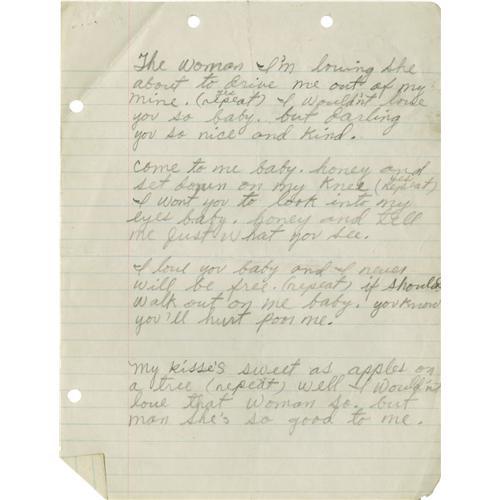 The Woman I'm loving she
about to drive me out of my
mine. (repeat) I wouldn't love
you so baby. but darling
you so nice and kind.
come to me baby. honey and
set down on my knee (repeat)
I wont you to look into my
eyes baby. honey and tell
me just what you see.
I love you baby and I never
will be free. (repeat) if should
walk out on me baby. you know
you'll hurt poor me.
My kisse's sweet as apples on
a tree (repeat) well I wouldn't
love that woman so. but
man she's so good to me.